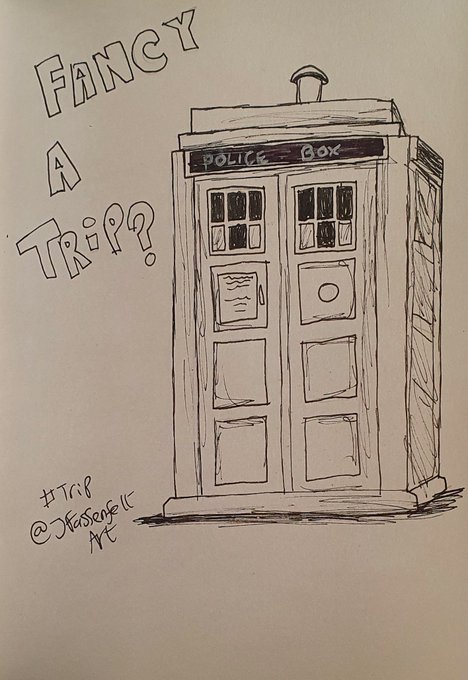 FANCY
A
TRiP?
POLICE BOX
#Trip
@JFassenfelt
Art